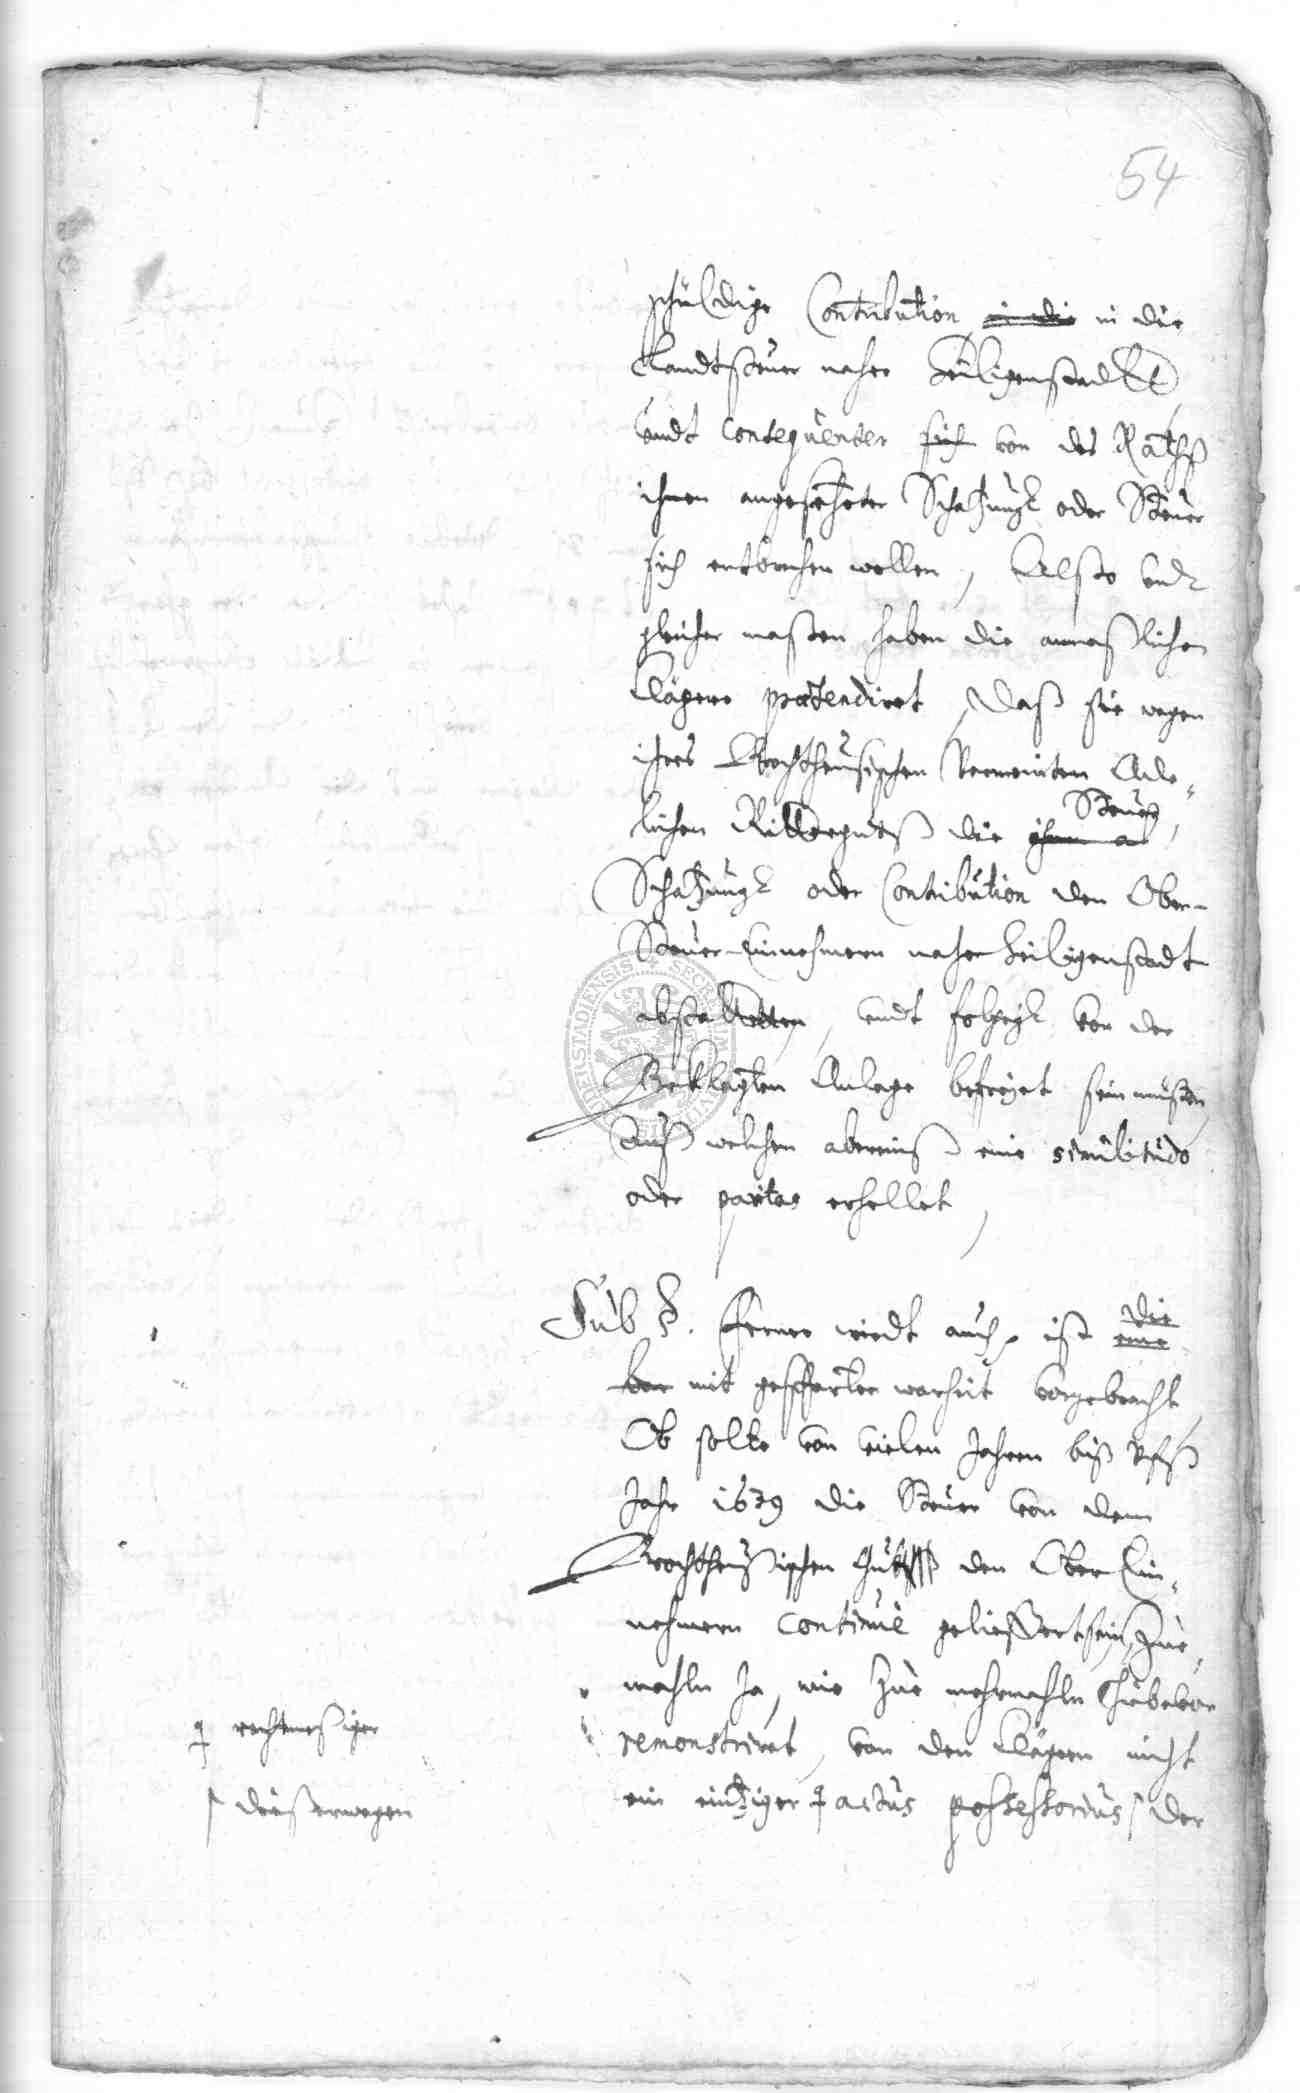 54
schuldige Contribution in die
Landtsteuer naher Heiligenstadtt
undt consequenter sich von des Raths
ihnen angesetzter Schatzungk oder Steuer
sich entbrechen wollen, Alsso undt
gleicher massen haben die anmaßlichen
Clägere praetendiret, Daß sie wegen
ihres Brochtheusischen Vermeinten Ade-
lichen Ritterguetß die Steuer,
Schatzungk oder Contribution den Ober-
Steuer-Einnehmern naher Heiligenstadt
abstatten, undt folgigk von der
Beklagten Anlage befreyet sein müsten
Auß welchen abereinß eine similitudo
oder paritas erhellet,
Sub §. Ferner wirdt auch, ist die
eine
mit gesparter warheit vorgebracht,
Ob solte von vielen Jahren biß uffß
Jahr 1639 die Steuer von dem
Brochtheusischen Gut den Ober Ein-
nehmern continuè gelieffert sein, Zue-
mahln Ja, wie Zue mehrmahln hiebevor
remonstriret, von den Clägern nicht
ein eintziger actus possessorius der
rechtmeßiger
dießerwegen
SECRETUM CIVITATIS